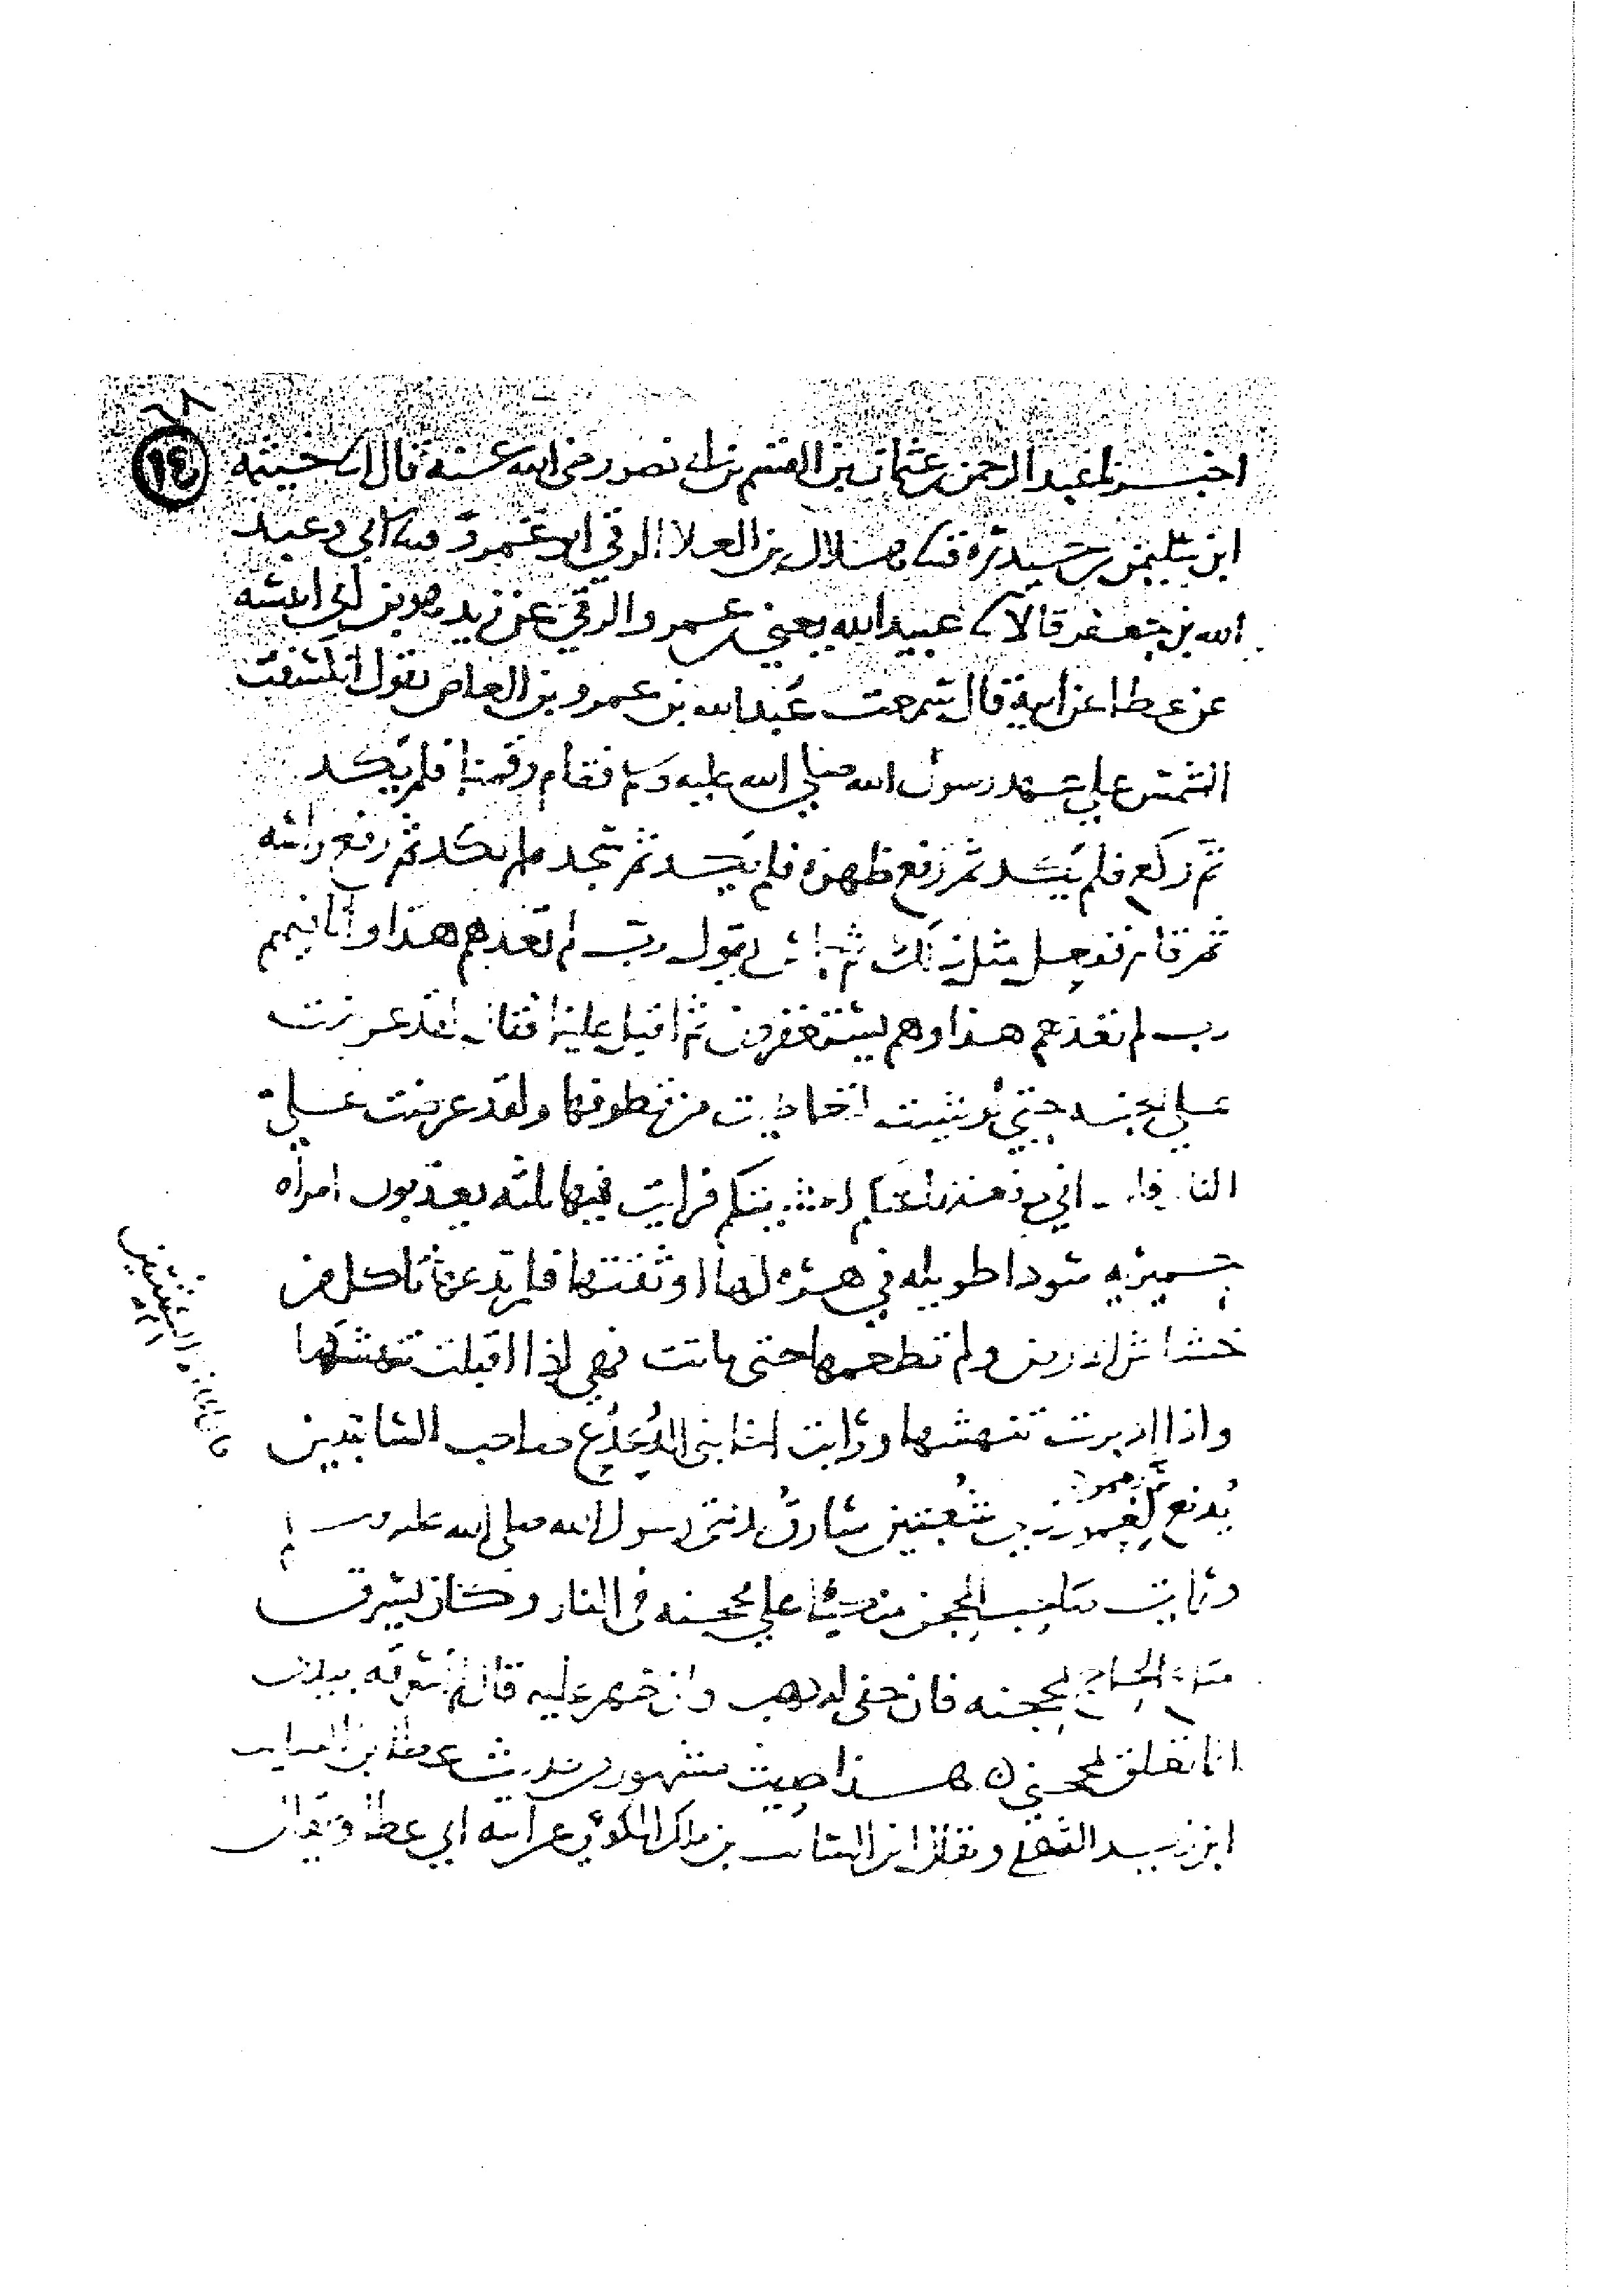 ٦٨
١٤
اخبرنا عبد الرحمن بن عثمان بن القسم بن ابي نصر رضي الله عنه قال انا خيثمة
ابن سليمن بن حيدرة قثنا هلال بن العلا الرقي ابو عمرو قثنا ابي وعبد
الله بن جعفر قالا ثنا عبيد الله يعني بن عمرو الرقي عن زيد هو بن ابي انيسه
عن عطا عن ابيه قال سمعت عبد الله بن عمرو بن العاص يقول انكسفت
الشمس علي عهد رسول الله صلي الله عليه وسلم فقام وقمنا فلم يكد
ثم ركع فلم يكد ثم رفع ظهره فلم يكد ثم سجد فلم يكد ثم رفع راسه
ثم قام ففعل مثل ذلك ثم يقول رب لم تعذبهم هذا وانا فيهم
رب لم تعذبهم هذا وهم يستغفرون ثم اقبل علينا فقال لقد عرضت
علي الجنه حتي لو شيت لتعاطيت من قطوفها ولقد عرضت علي
النار اني فرايت فيها ثلثه يعذبون امراه
حميريه سودا طويله في هره لها اوثقتها فلم تدعها تاكل من
خشاش الارض ولم تطعمها حتى ماتت فهي اذا اقبلت تنهشها
واذا ادبرت تنهشها ورايت اخا بني الدعدع صاحب السايبتين
يدفع بعمود ذي شعبتين سارق بدنتي رسول الله صلى الله عليه وسلم
ورايت صاحب المحجن متوكيا علي محجنه في النار وكان يسرق
متاع الحاج بمحجنه فان خفى له ذهب وان ظهر عليه قال لم اسرقه
انما تعلق بمحجني هذا حديث مشهور من حديث عطا بن السايب
ابن زيد الثقفي ويقال ابن السايب بن مالك الكوفي عن ابيه ابي عطا ويقال